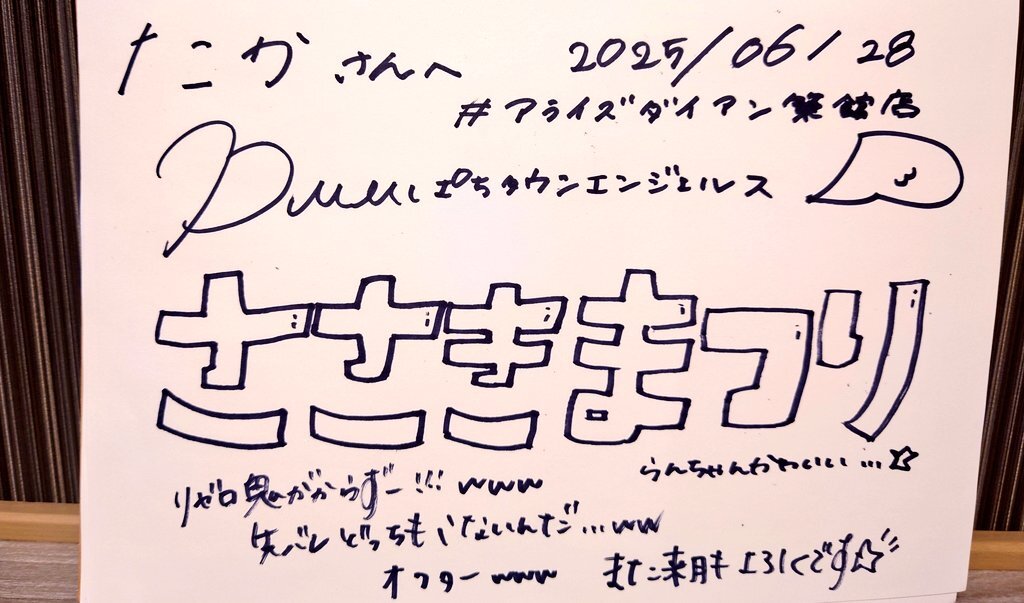 たこか さんへ 2025/06/28
#アライズダイアン築館店
ぱちタウンエンジェルス
ささきまつり
らんちゃんかわいい...☆
リゼロ鬼がかからずー!!! www
どっちもいないんだ...ww
オフター www また来月もよろしくです☆